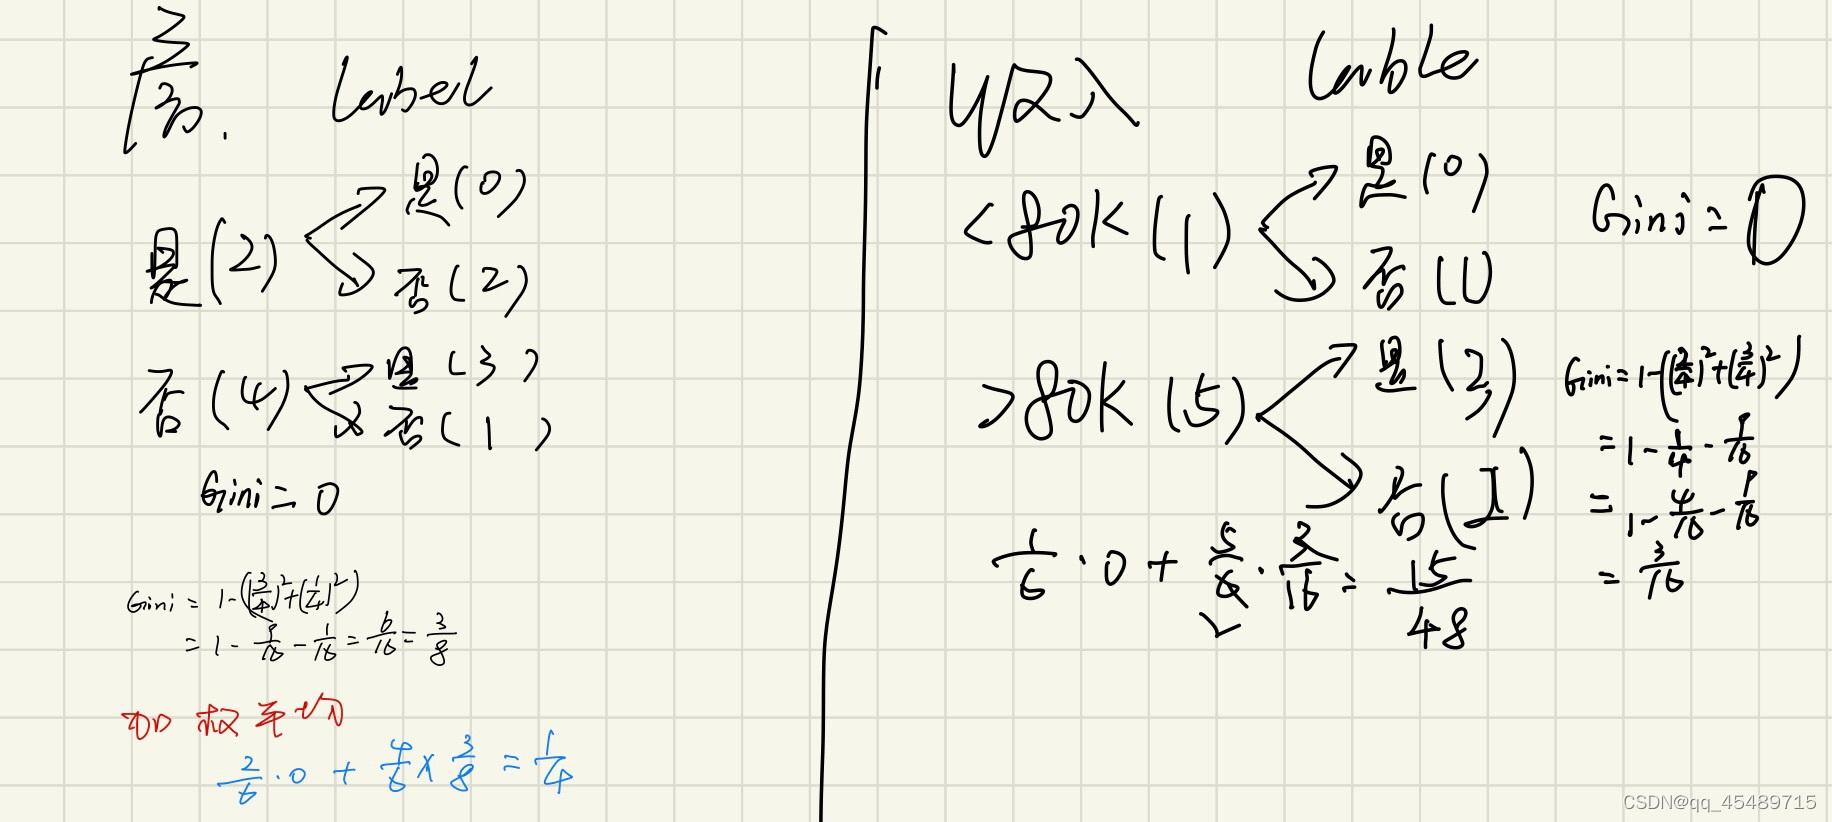 高. Label
是(2) 是(0)
否(2)
否(4) 是(3)
否(1)
Gini=0
Gini = 1-((3/4)²+(1/4)²)
= 1 - 9/16 - 1/16 = 6/16 = 3/8
加权平均
2/6 · 0 + 4/6 × 3/8 = 1/4
收入 Lable
<80K(1) 是(0)
否(1)
Gini = 0
>80K(5) 是(3)
否(2)
Gini = 1-((2/4)²+(3/4)²)
= 1 - 1/4 - 9/16
= 1 - 4/16 - 9/16
= 3/16
1/6 · 0 + 5/6 · 3/16 = 15/48
CSDN@qq_45489715